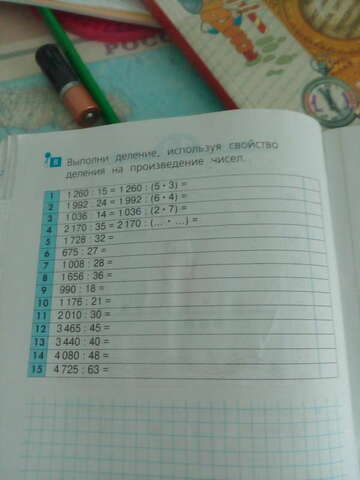 РОСС
8 Выполни деление, используя свойство
деления на произведение чисел.
1 1 260 : 15 = 1 260 : (5 • 3) =
2 1 992 : 24 = 1 992 : (6 • 4) =
3 1 036 : 14 = 1 036 : (2 • 7) =
4 2 170 : 35 = 2 170 : (... • ...) =
5 1 728 : 32 =
6 675 : 27 =
7 1 008 : 28 =
8 1 656 : 36 =
9 990 : 18 =
10 1 176 : 21 =
11 2 010 : 30 =
12 3 465 : 45 =
13 3 440 : 40 =
14 4 080 : 48 =
15 4 725 : 63 =